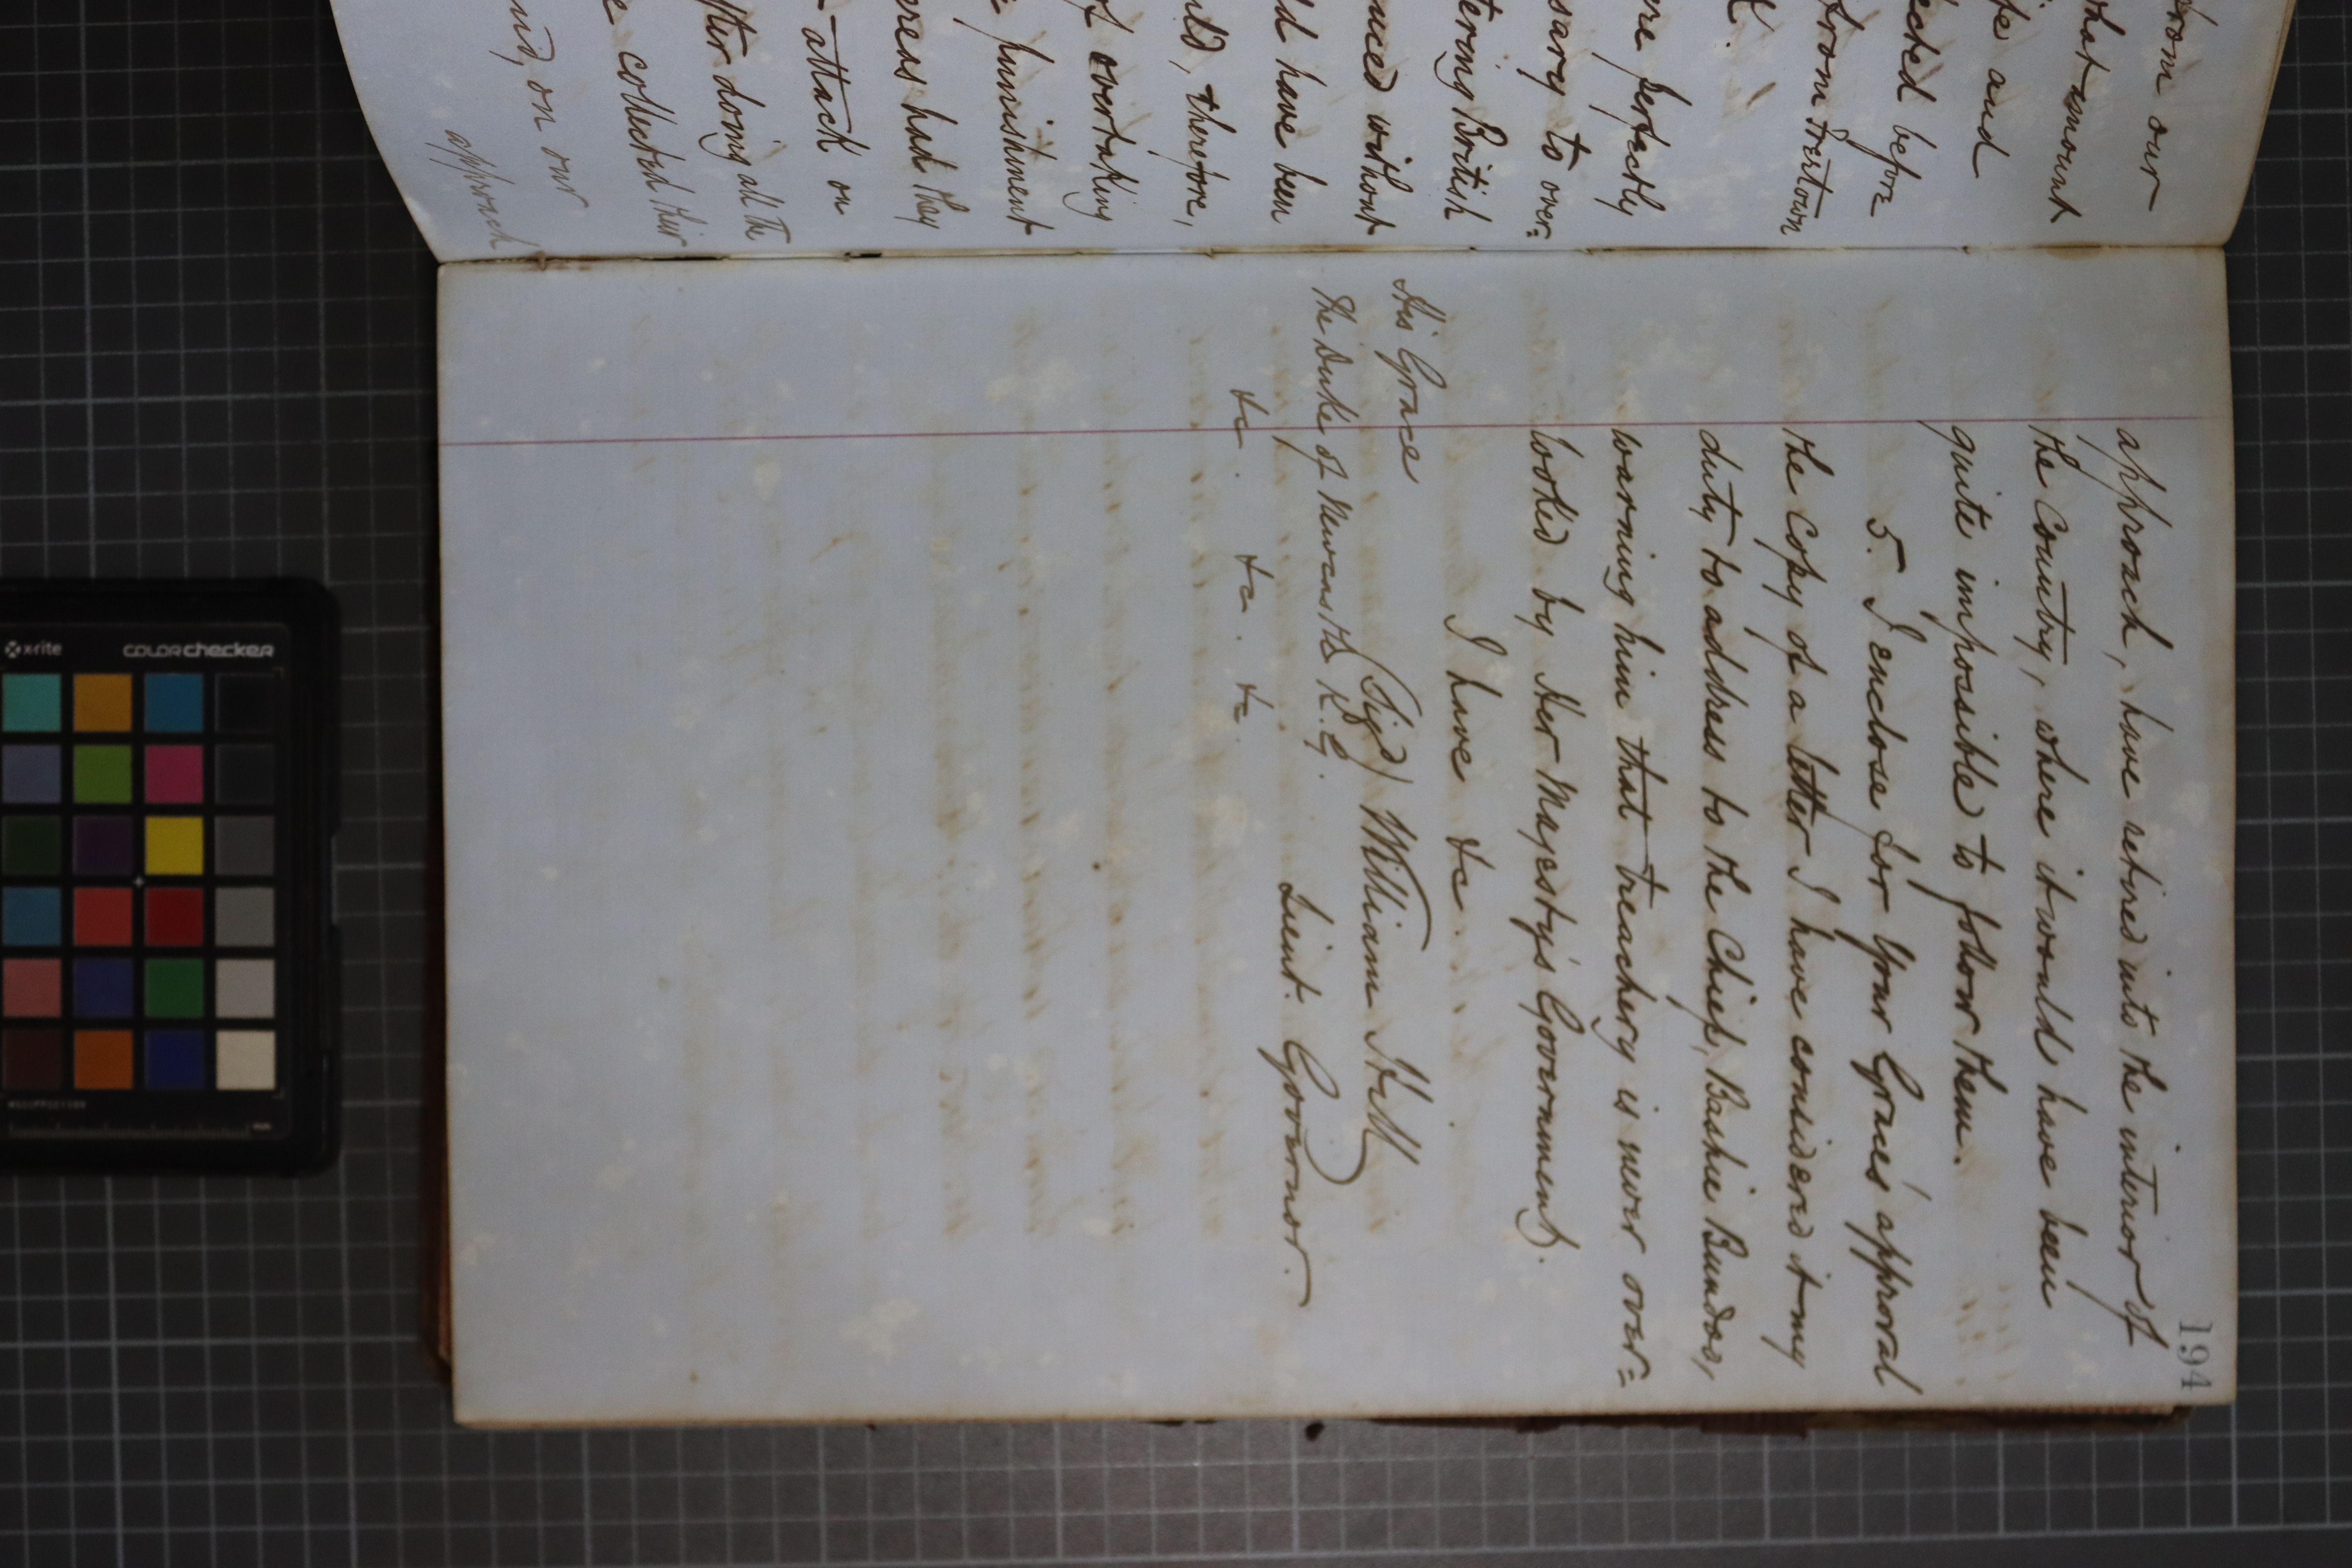 from our
hat amount
fe and
ected before
from Freetown
K.
re perfectly
sary to over=
tering British
nced without
ld have been
uld, therefore,
of overtaking
punishment
ereas had they
attack on
fter doing all the
e collected their
and, on our
approach
194
approach, have retired into the interior of
the Country, where it would have been
quite impossible to follow them.
5. I enclose for Your Grace's approval
the Copy of a letter I have considered it my
duty to address to the Chief, Bashie Bundoo,
warning him that treachery is never over=
looked by Her Majesty's Government.
I have &c.
(Sigd) William Hill
Lieut. Governor.
His Grace
The Duke of Newcastle K.G.
&c. &c. &c.
x-rite
colorchecker